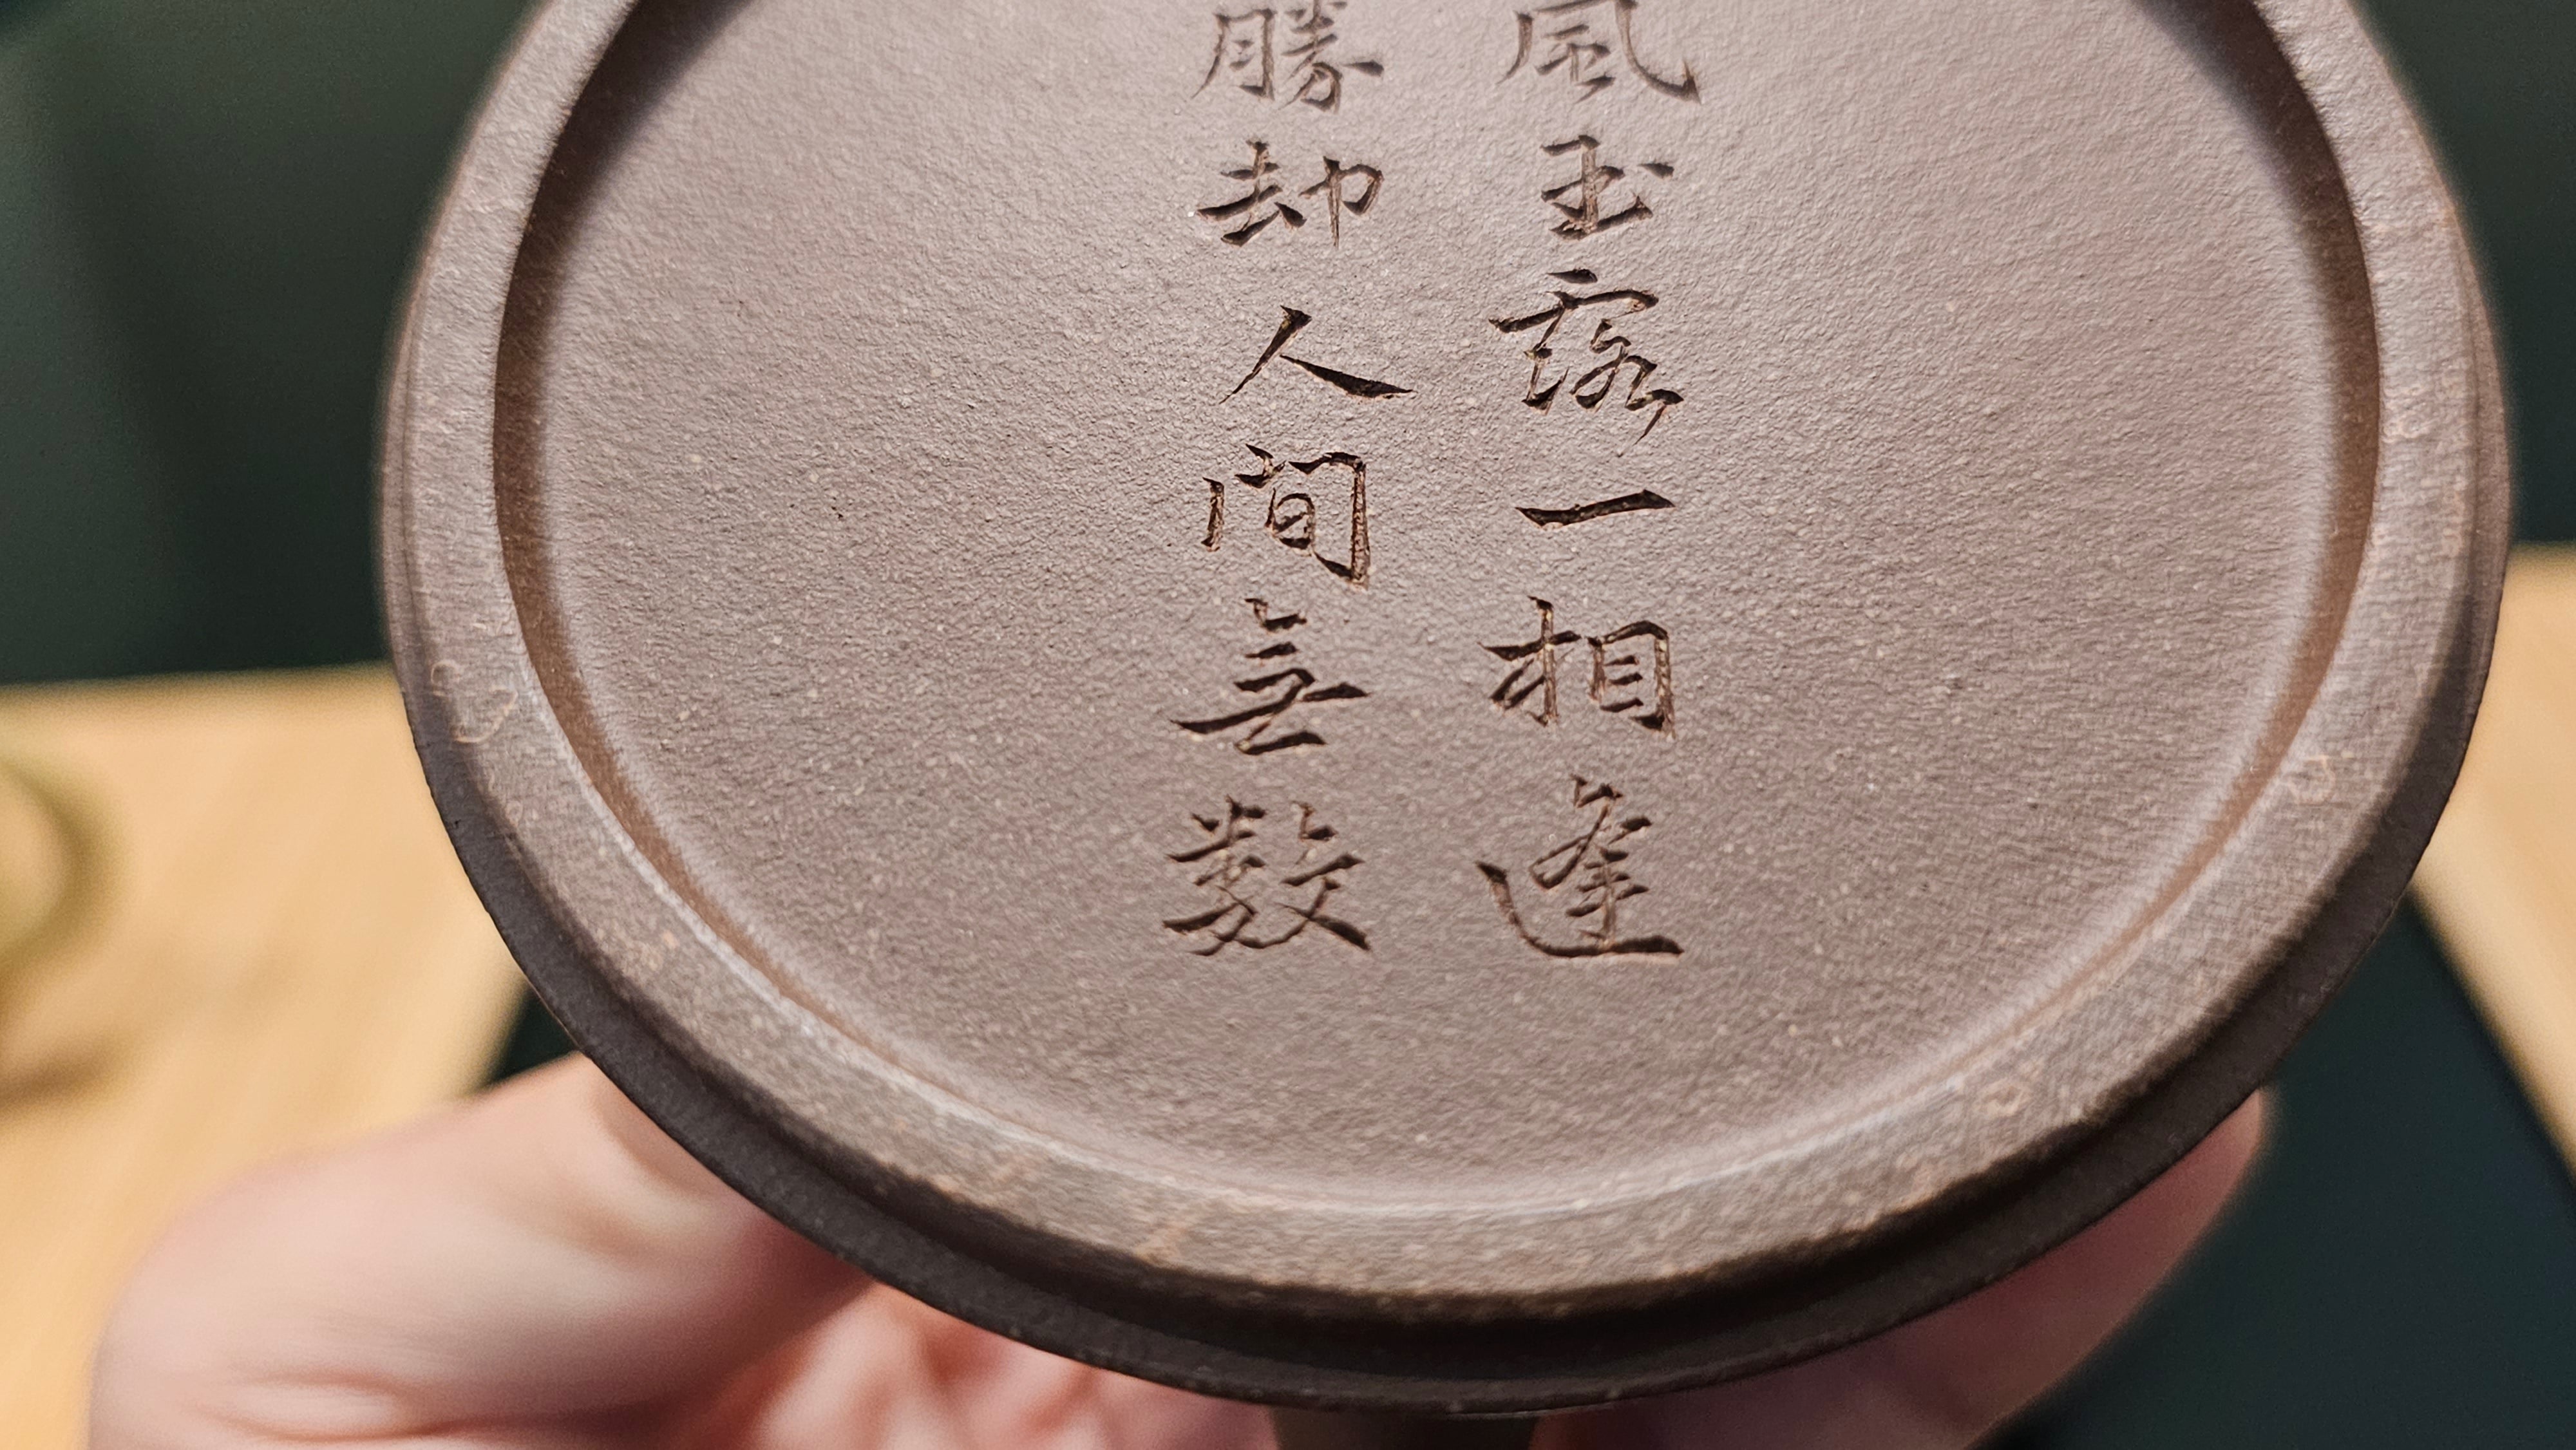 風玉露一相逢
勝却人间無数